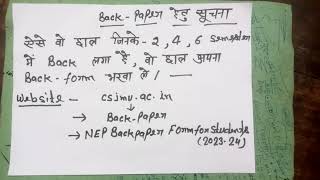 Back-Paper हेतु सूचना
ऐसे वो छात्र जिनके - 2, 4, 6 semester
में Back लगा है, वो छात्र अपना
Back-form भरवा ले। —
Website - csjmu.ac.in
→ Back-Paper
→ NEP Backpaper Form for Students
(2023-24)